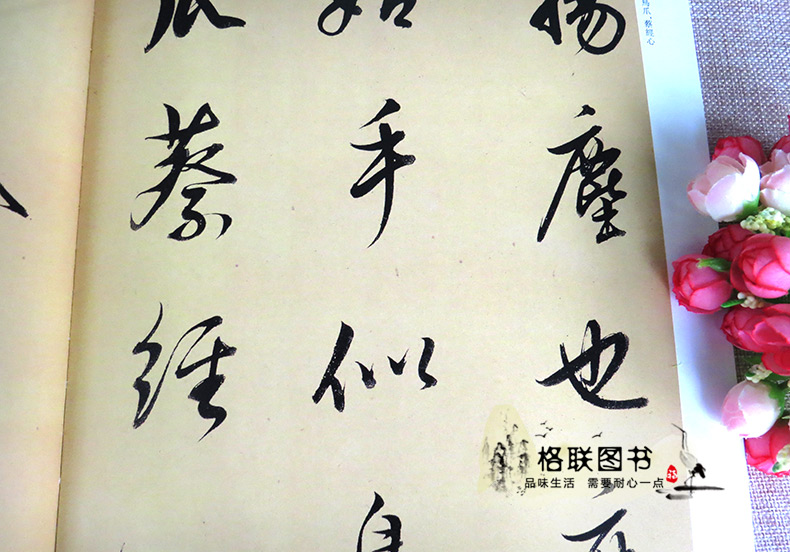 鳥爪，蔡經心
揚塵也
姑手似鳥
爪蔡經
格联图书
品味生活 需要耐心一点